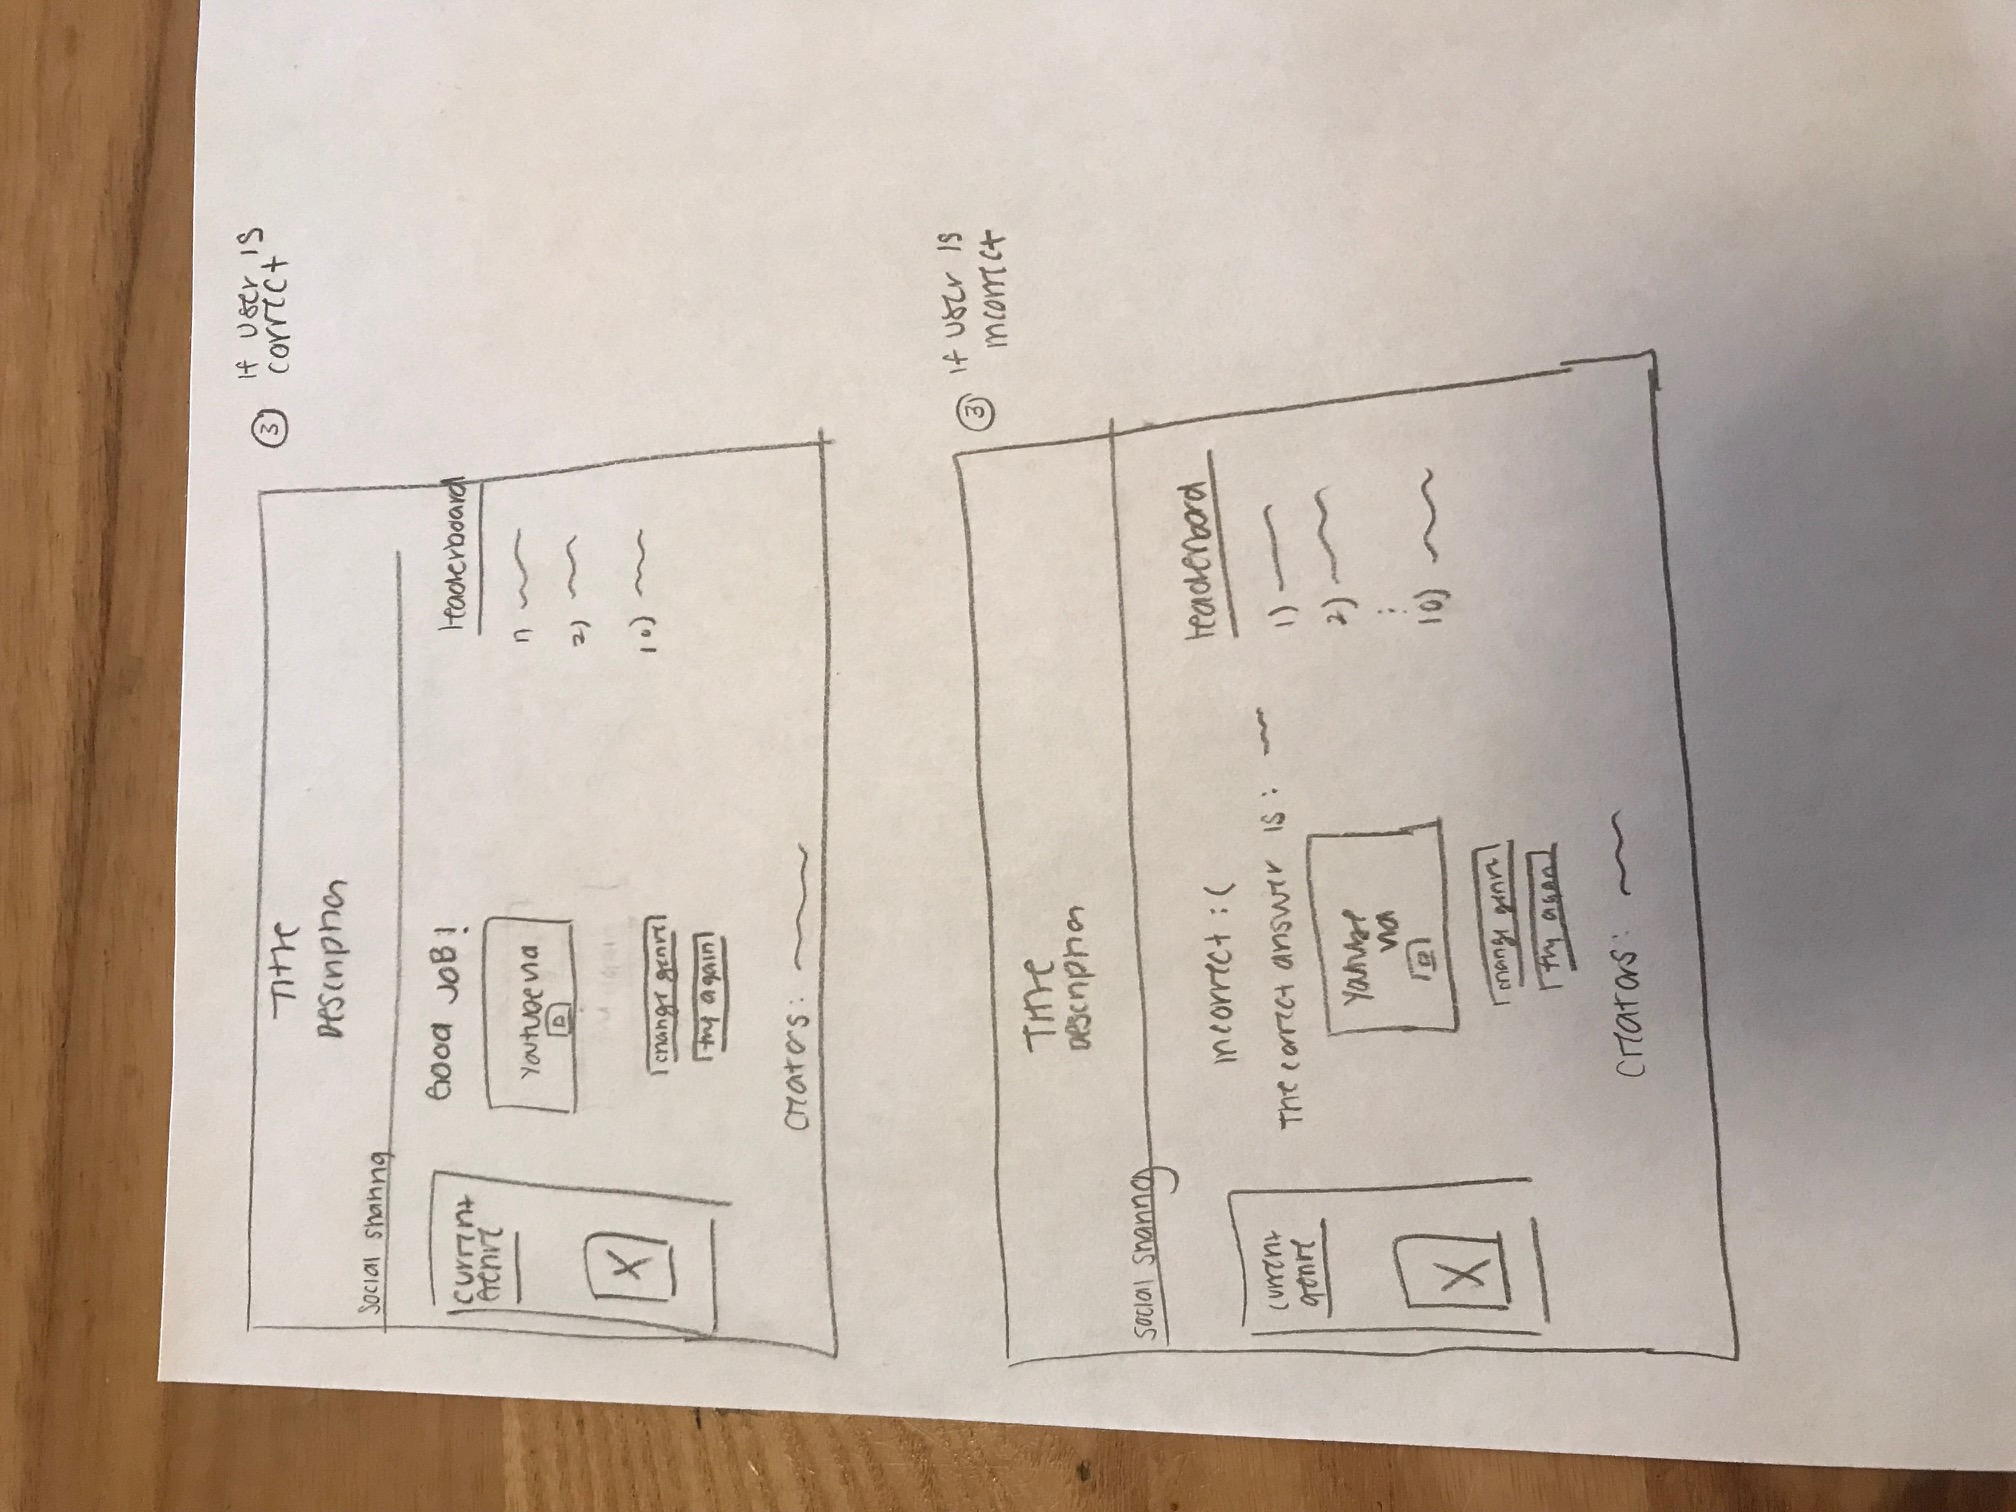 ③ If user is
correct
Title
Description
Social sharing
Current
Genre
X
Good JOB!
Youtube vid
change genre
try again
Leaderboard
1)
2)
10)
Creators:
③ If user is
incorrect
Title
Description
Social sharing
current
genre
X
incorrect :(
The correct answer is:
Youtube
vid
change genre
try again
Leaderboard
1)
2)
⋮
10)
Creators: